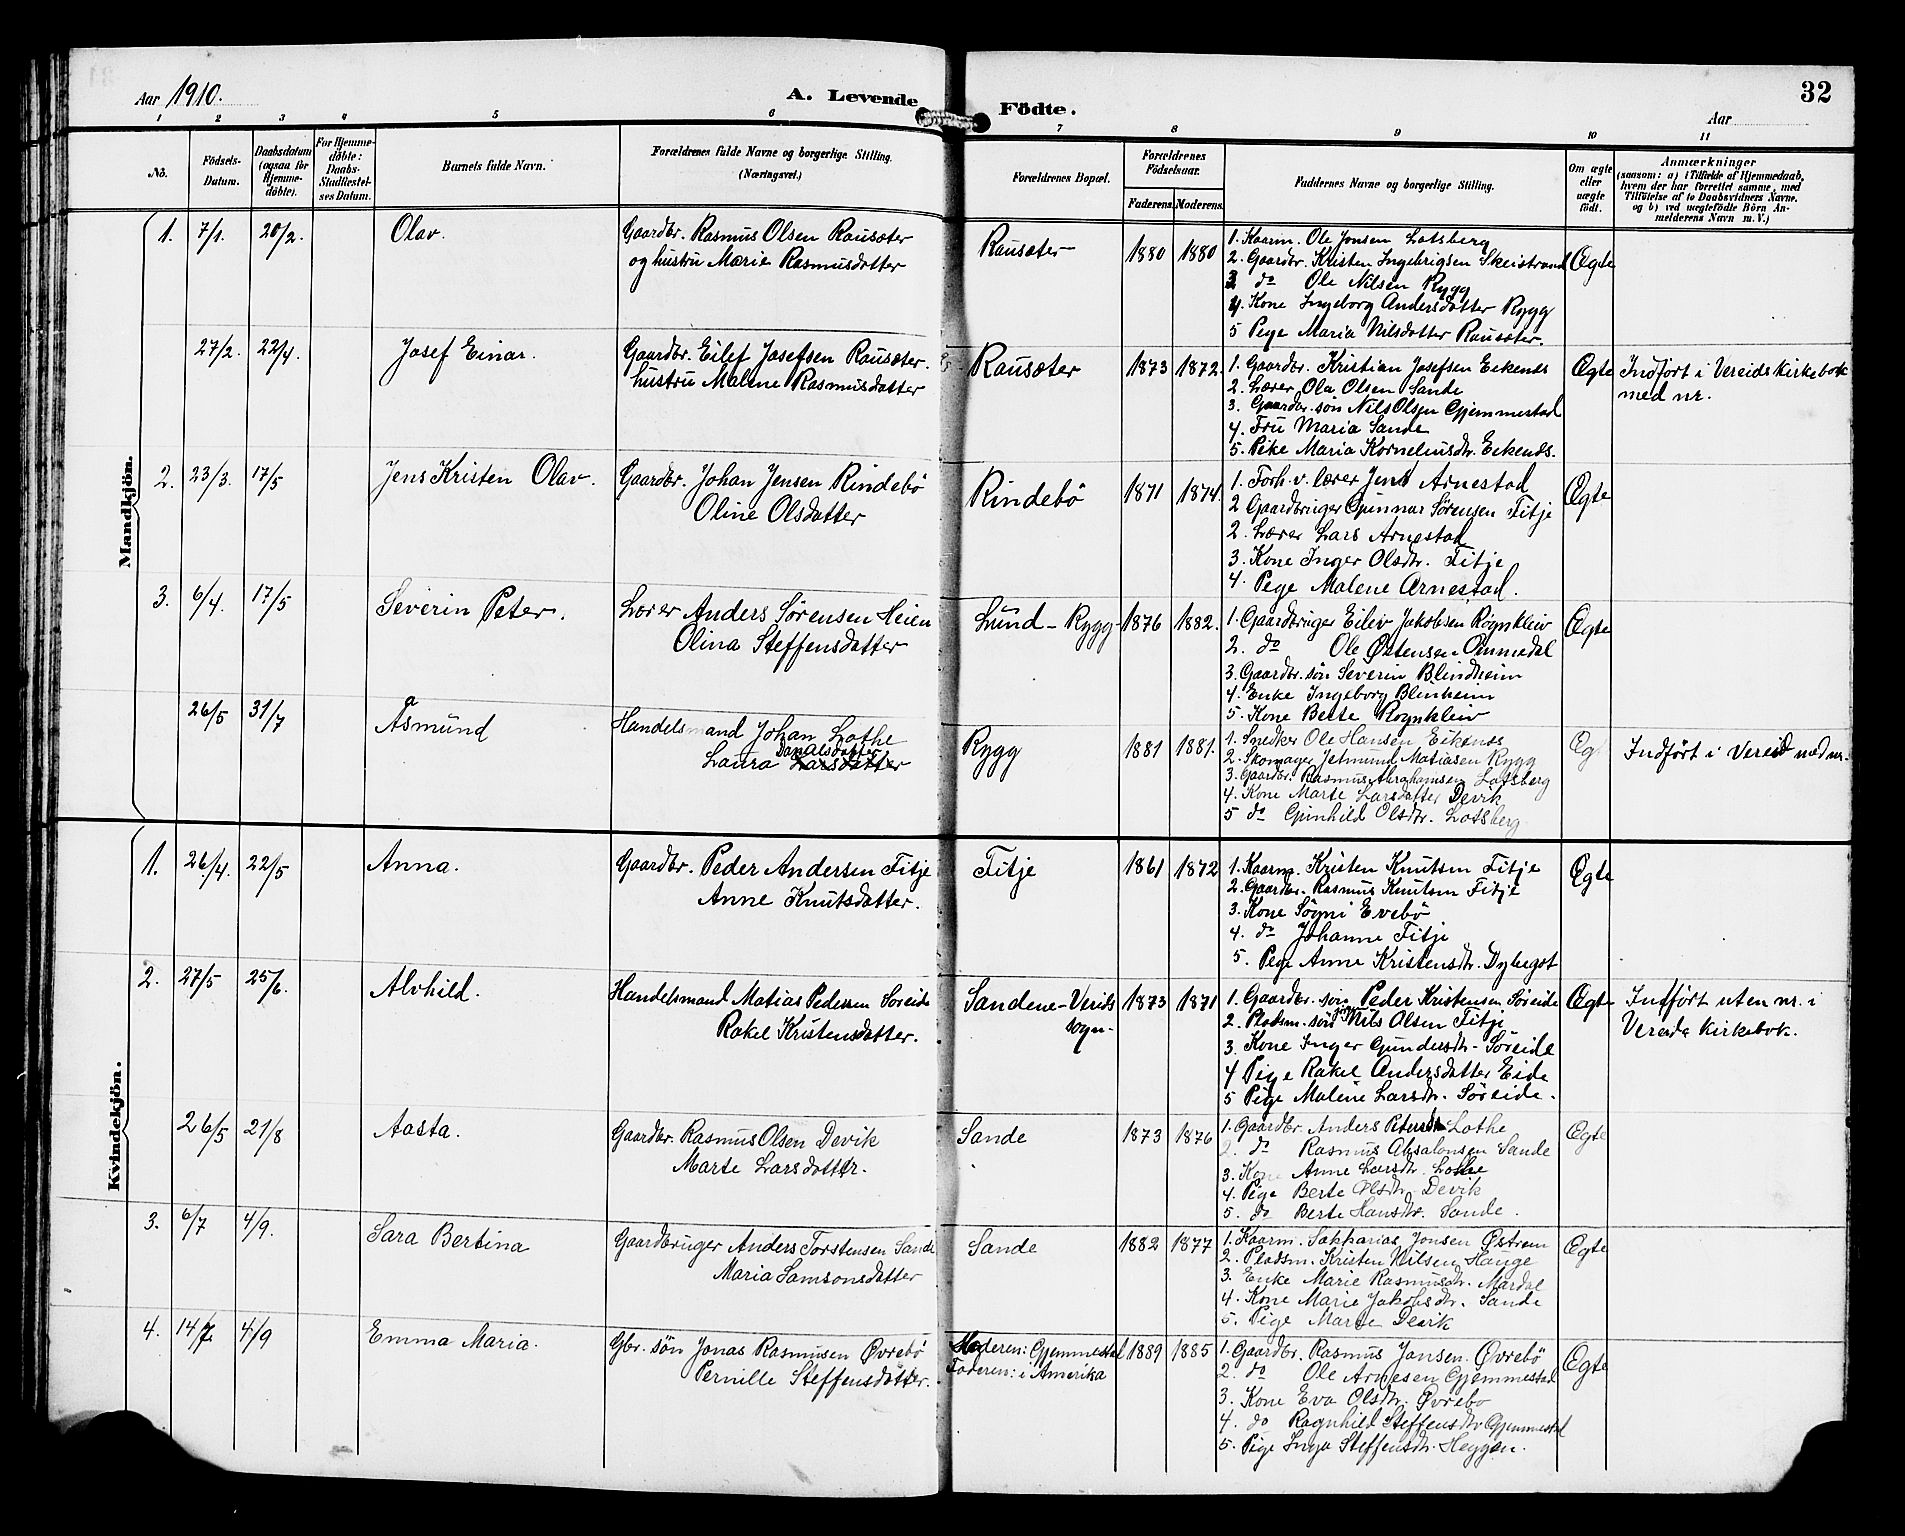 Aar 1910.
A. Levende Födte.
32
Aar
1 2 3 4 5 6 7 8 9 10 11
No.
Födsels-
Datum.
Daabsdatum
(ogsaa for
Hjemme-
döbte).
For Hjemme-
döbte:
Daabs-
Stadfæstel-
ses Datum.
Barnets fulde Navn.
Forældrenes fulde Navne og borgerlige Stilling.
(Næringsvei.)
Forældrenes Bopæl.
Forældrenes
Födselsaar.
Faderens. Moderens.
Faddernes Navne og borgerlige Stilling.
Om ægte
eller
uægte
født.
Anmærkninger
(saasom: a) i Tilfælde af Hjemmedaab,
hvem der har forrettet samme, med
Tilföielse af to Daabsvidners Navne.
og b) ved uægtefödte Börn An-
melderens Navn m. V.)
Mandkjön.
1. 7/1. 20/2. Olav.
Gaardbr. Rasmus Olsen Rausæter
og hustru Marie Rasmusdatter
Rausæter 1880 1880
1. Kaarm. Ole Jonsen Lotsberg
2. Gaardbr. Kristen Ingebrigsen Skeistrand
3 do Ole Nilsen Rygg
4. Kone Ingeborg Andersdatter Rygg
5 Pige Maria Nilsdatter Rausæter.
Ægte
27/2. 22/4. Josef Einar.
Gaardbr. Eilef Josefsen Rausæter.
hustru Malene Rasmusdatter
Rausæter 1873 1872.
1. Gaardbr. Kristian Josefsen Eikenes
2. Lærer Ola Olsen Sande
3. Gaardbr. søn Nils Olsen Gjemmestad
4. Fru Maria Sande
5. Pike Maria Kornelius dr. Eikenes.
Ægte
Indført i Vereids Kirkebok
med nr.
2. 23/3. 17/5 Jens Kristen Olav.
Gaardbr. Johan Jensen Rindebö
Oline Olsdatter
Rindebö 1871 1874.
1. Forh. v. lærer Jens Arnestad
2 Gaardbruger Gunnar Sörensen Fitje
2. Lærer Lars Arnestad
3. Kone Inger Olsdtr. Fitje
4. Pege Malene Arnestad.
Ægte
3. 6/4. 17/5 Severin Peter.
Lærer Anders Sørensen Heien
Olina Steffensdatter
Lund - Rygg - 1876 1882.
1. Gaardbruger Eilev Jakobsen Røgnkleiv
2. do Ole Østensen Ommedal
3. Gaardbr. søn Severin Blindheim
4. Enke Ingeborg Blinheim
5. Kone Berte Rognkleiv
Ægte
26/5 31/7 Åsmund
Handelsmand Johan Lothe
Danielsdatter
Laura Larsdatter
Rygg 1881 1881.
1. Snedker Ole Hansen Eikenes
2. Skomager Jetmund Matiasen Rygg
3. Gaardbr. Rasmus Abrahamsen Lotsberg
4. Kone Marte Larsdatter Devik
5 do Gunhild Olsdtr. Lotsberg
Indført i Vereid med nr.
Kvindekjön.
1. 26/4. 22/5 Anna.
Gaardbr. Peder Andersen Fitje
Anne Knutsdatter.
Fitje 1861 1872
1. Kaarm. Kristen Knutsen Fitje
2. Gaardbr. Rasmus Knutsen Fitje
3. Kone Søgni Evebö
4. do Johanne Fitje
5. Pege Anne Kristensdtr.
Ægte
2. 27/5 25/6. Alvhild.
Handelsmand Matias Pedersen Søreide
Rakel Kristensdatter.
Sandene - Vereids
sogn- 1873 1871
1. Gaardbr. søn Peder Kristensen Søreide
2. Pladsm. søn Nils Olsen Fitje
3. Kone Inger Gundersdtr. Søreide
4 Pige Rakel Andersdatter Eide
5 Pige Malene Larsdtr. Søreide.
Ægte
Indført uten nr. i
Vereids Kirkebok.
26/5 21/8 Aasta.
Gaardbr. Rasmus Olsen Devik
Marte Larsdatter.
Sande 1873 1876
1. Gaardbr. Anders Lothe
2. do Rasmus Absalonsen Sande
3. Kone Anne Larsdtr. Lothe
4. Pige Berte Olsdtr. Devik
5. do Berte Hansdtr. Sande.
Ægte
3. 6/7 4/9. Sara Bertina
Gaardbruger Anders Torstensen Sande
Maria Samsonsdatter
Sande 1882 1877
1. Kaarm. Sakkarias Jonsen Østrem
2. Pladsm. Kristen Nilsen Hauge
3. Enke Marie Rasmusdtr. Mardal
4. Kone Marie Jakobsdtr. Sande
5. Pige Marte Devik
Ægte
4. 14/7. 4/9 Emma Maria.
Gbr. søn Jonas Rasmusen Øvrebö
Pernille Steffensdatter.
Moderen: Gjemmestad
Faderen: i Amerika
1889 1885
1. Gaardbr. Rasmus Jonsen Øvrebö
2. do Ole Arnesen Gjemmestad
3. Kone Eva Olsdtr. Øvrebo
4. do Ragnhild Steffensdtr Gjemmestad
5. Pige Inga Steffensdtr. Heggen.
Ægte